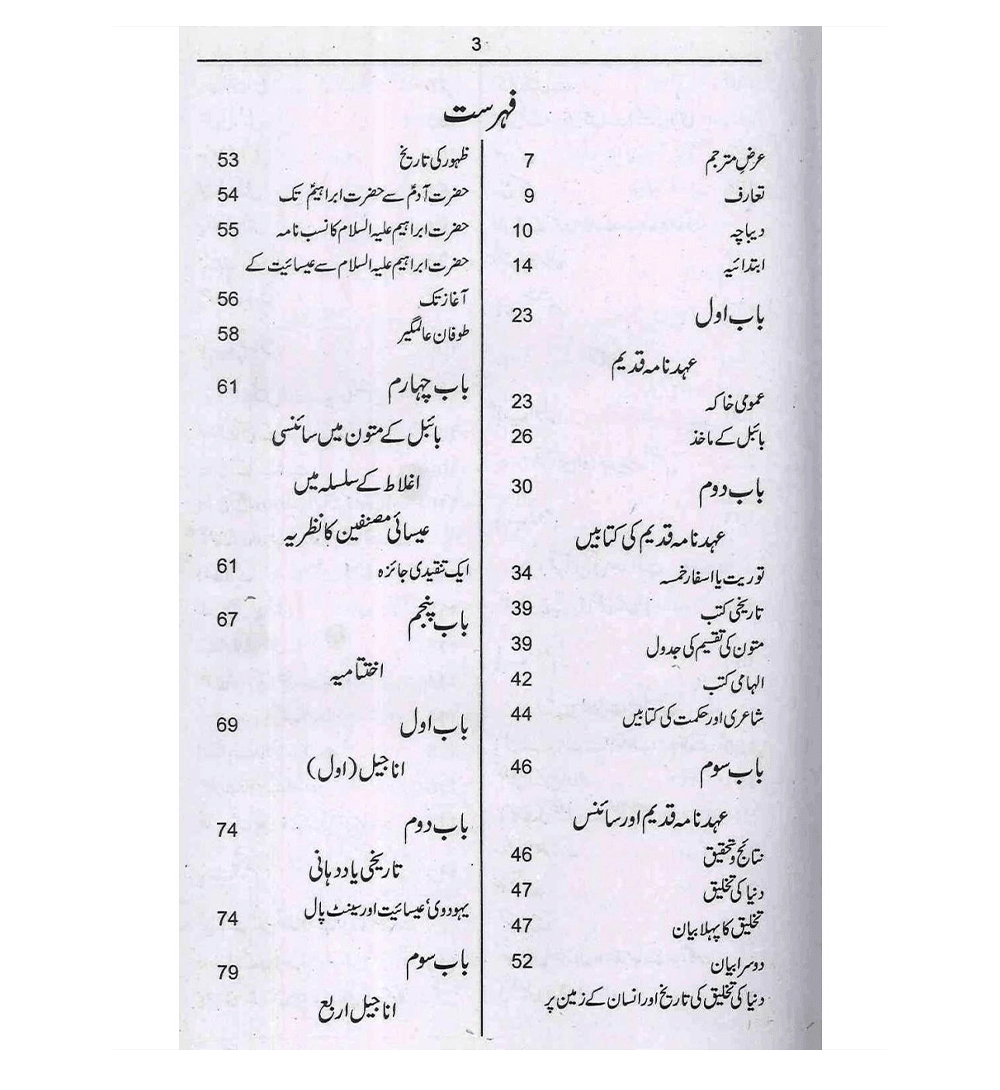 3
فہرست
عرض مترجم 7
تعارف 9
دیباچہ 10
ابتدائیہ 14
باب اول 23
عہد نامہ قدیم
عمومی خاکہ 23
بائبل کے ماخذ 26
باب دوم 30
عہد نامہ قدیم کی کتابیں
توریت یا اسفار خمسہ 34
تاریخی کتب 39
متون کی تقسیم کی جدول 39
الہامی کتب 42
شاعری اور حکمت کی کتابیں 44
باب سوم 46
عہد نامہ قدیم اور سائنس
نتائج و تحقیق 46
دنیا کی تخلیق 47
تخلیق کا پہلا بیان 47
دوسرا بیان 52
دنیا کی تخلیق کی تاریخ اور انسان کے زمین پر
ظہور کی تاریخ 53
حضرت آدمؑ سے حضرت ابراہیمؑ تک 54
حضرت ابراہیم علیہ السلام کا نسب نامہ 55
حضرت ابراہیم علیہ السلام سے عیسائیت کے
آغاز تک 56
طوفان عالمگیر 58
باب چہارم 61
بائبل کے متون میں سائنسی
اغلاط کے سلسلہ میں
عیسائی مصنفین کا نظریہ
ایک تنقیدی جائزہ 61
باب پنجم 67
اختتامیہ
باب اول 69
اناجیل (اول)
باب دوم 74
تاریخی یاددہانی
یہودوی، عیسائیت اور سینٹ پال 74
باب سوم 79
اناجیل اربع